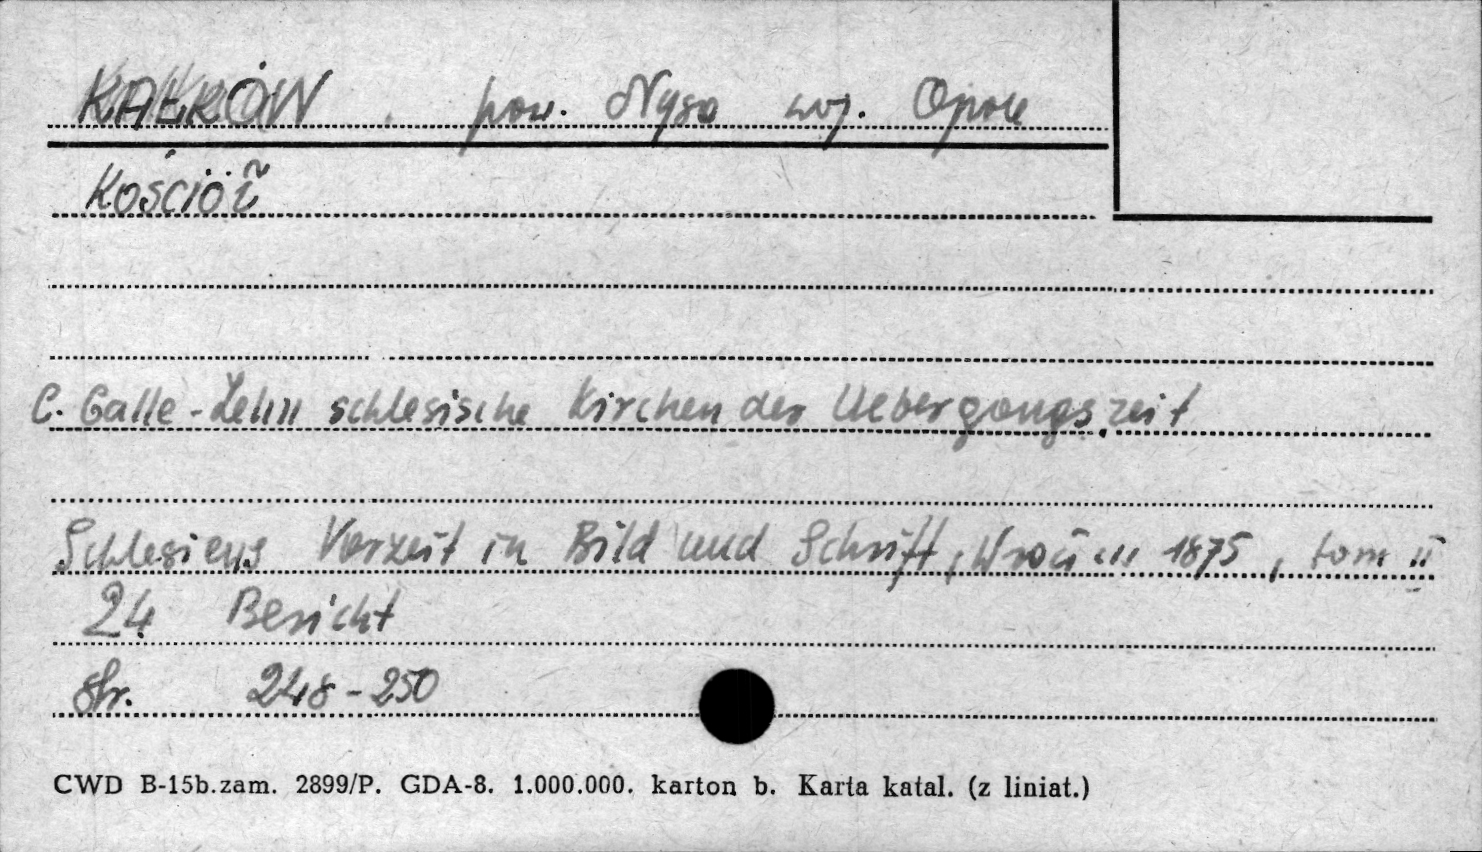 KAŁKÓW . pow. Nysa woj. Opole
Kościół
C. Galle - Zehn schlesische Kirchen der Uebergangszeit
Schlesiens Vorzeit in Bild und Schrift, 1875, tom II
24 Bericht
str. 248-250
CWD B-15b.zam. 2899/P. GDA-8. 1.000.000. karton b. Karta katal. (z liniat.)